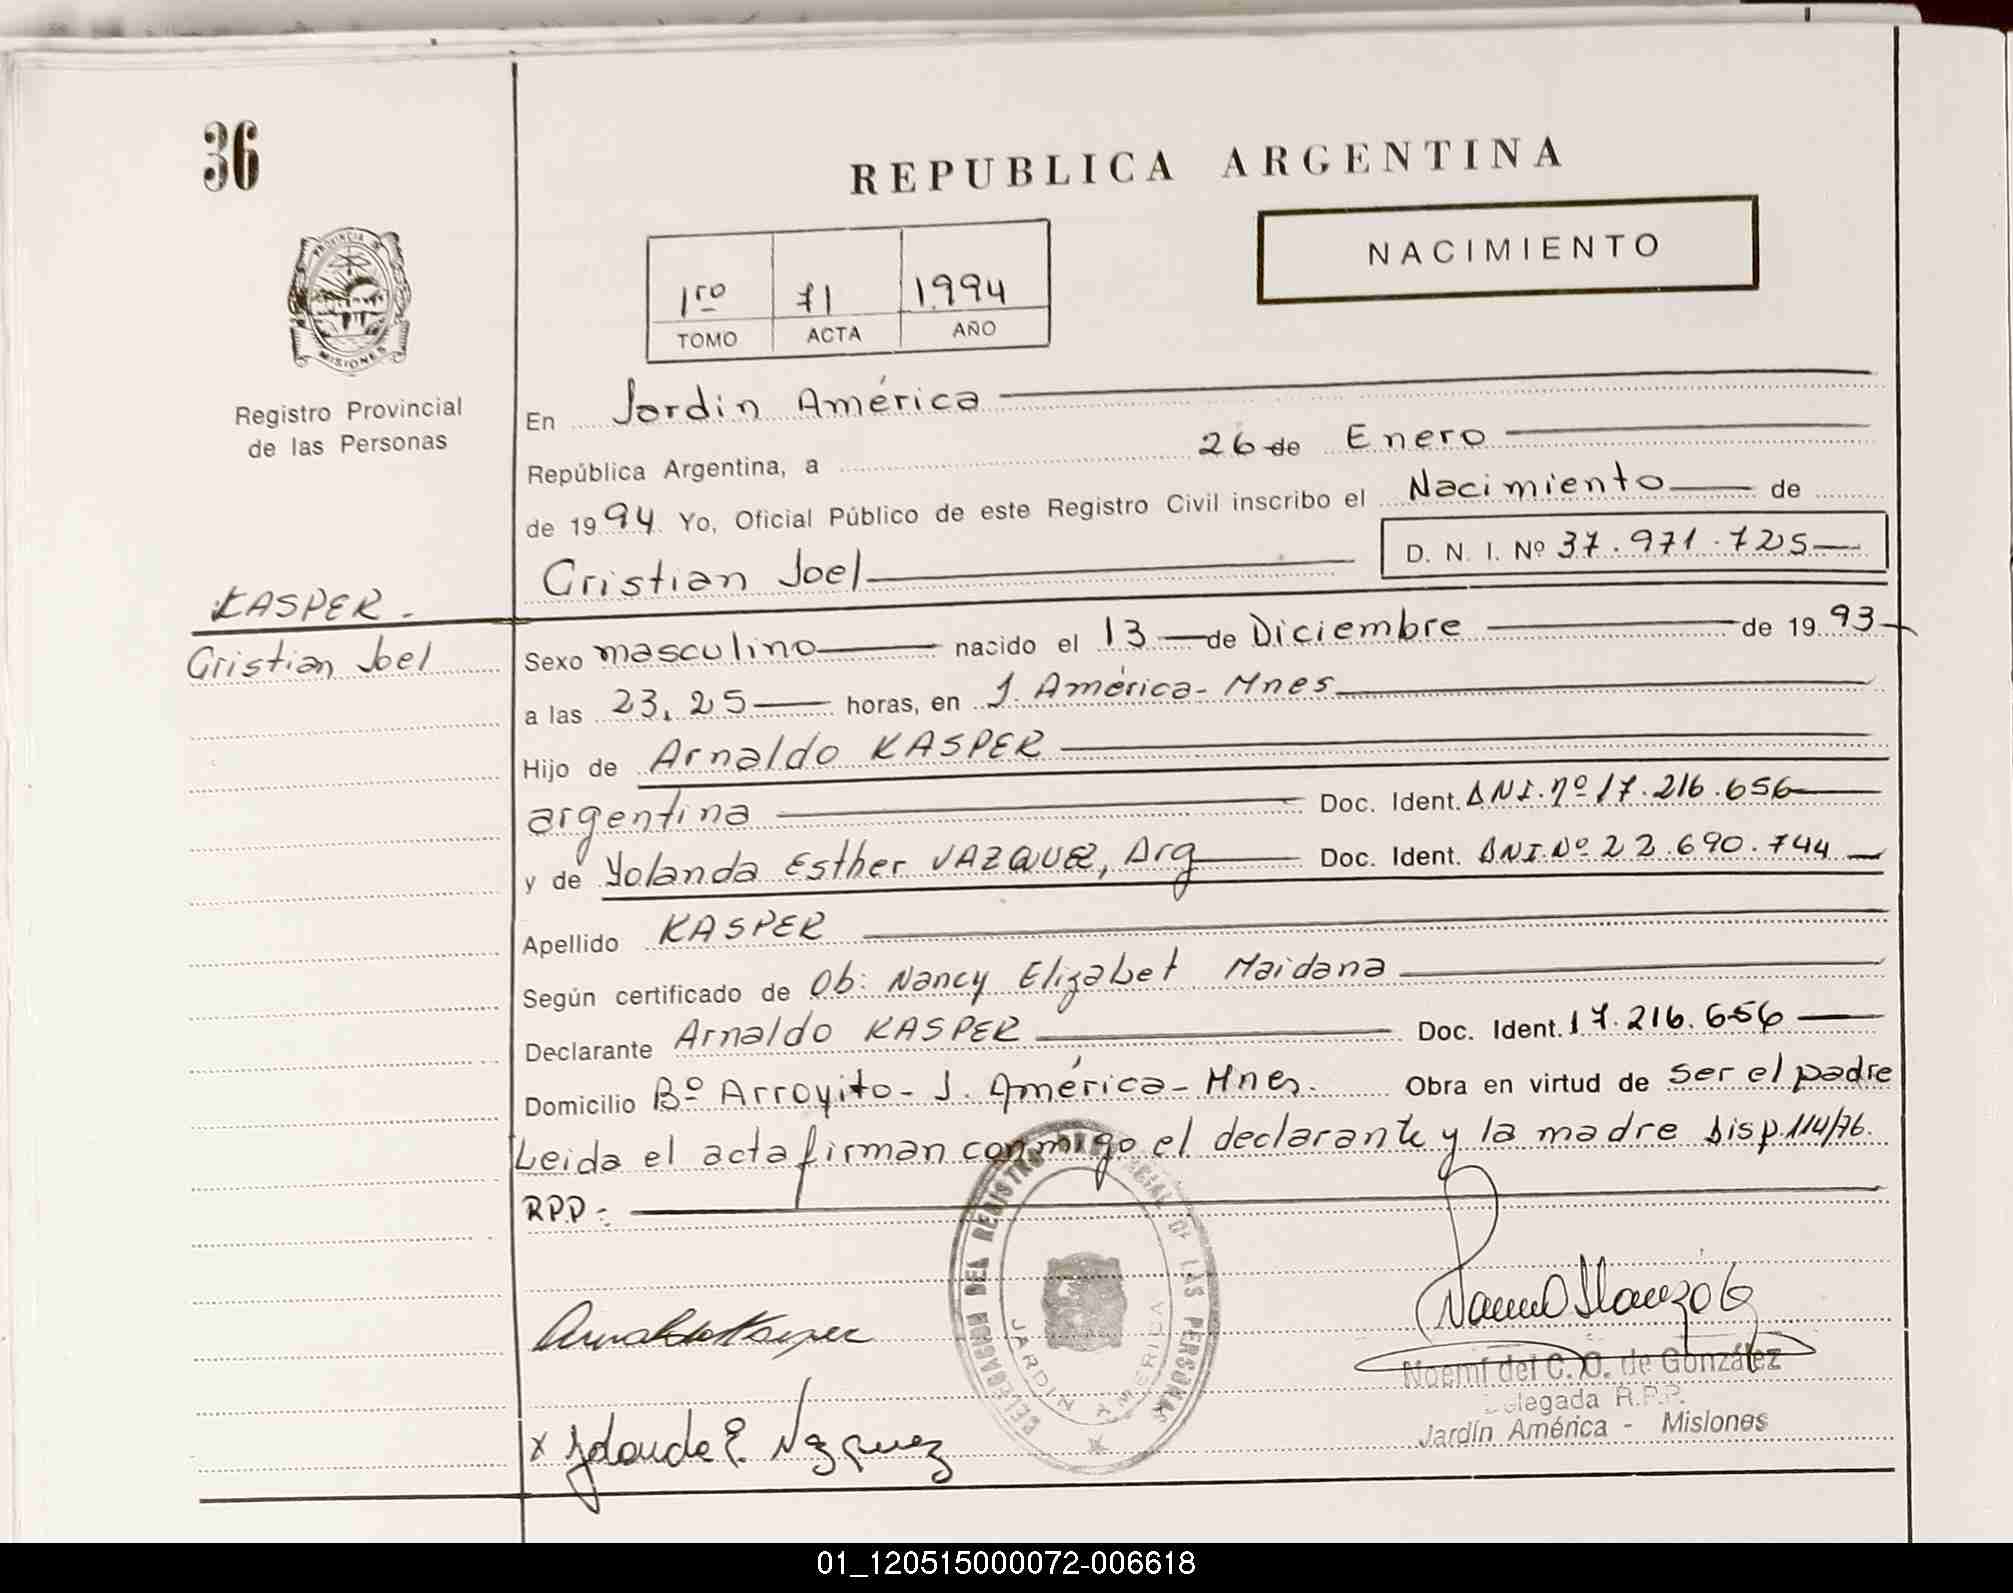 36
REPUBLICA ARGENTINA
NACIMIENTO
PROVINCIA DE
MISIONES
1ro 71 1994
TOMO ACTA AÑO
Registro Provincial
de las Personas
En Jardin América
República Argentina, a 26 de Enero
de 1994 Yo, Oficial Público de este Registro Civil inscribo el Nacimiento de
Cristian Joel D. N. I. Nº 37.971.725
KASPER -
Cristian Joel
Sexo masculino nacido el 13 de Diciembre de 1993
a las 23,25 horas, en J. América - Mnes
Hijo de Arnaldo KASPER
argentina Doc. Ident. DNI. nº 17.216.656
y de Yolanda Esther VAZQUEZ, Arg Doc. Ident. DNI. Nº 22.690.744
Apellido KASPER
Según certificado de Ob: Nancy Elizabet Maidana
Declarante Arnaldo KASPER Doc. Ident. 17.216.656
Domicilio Bº Arroyito - J. América - Mnes. Obra en virtud de ser el padre
Leida el acta firman conmigo el declarante y la madre Disp. 114/76.
RPP -
DELEGACION DEL REGISTRO PROVINCIAL DE LAS PERSONAS
JARDIN AMERICA
Arnaldo Kasper
Noemí del C. O. de González
Delegada R.P.P.
Jardín América - Misiones
x Yolanda E. Vazquez
01_120515000072-006618